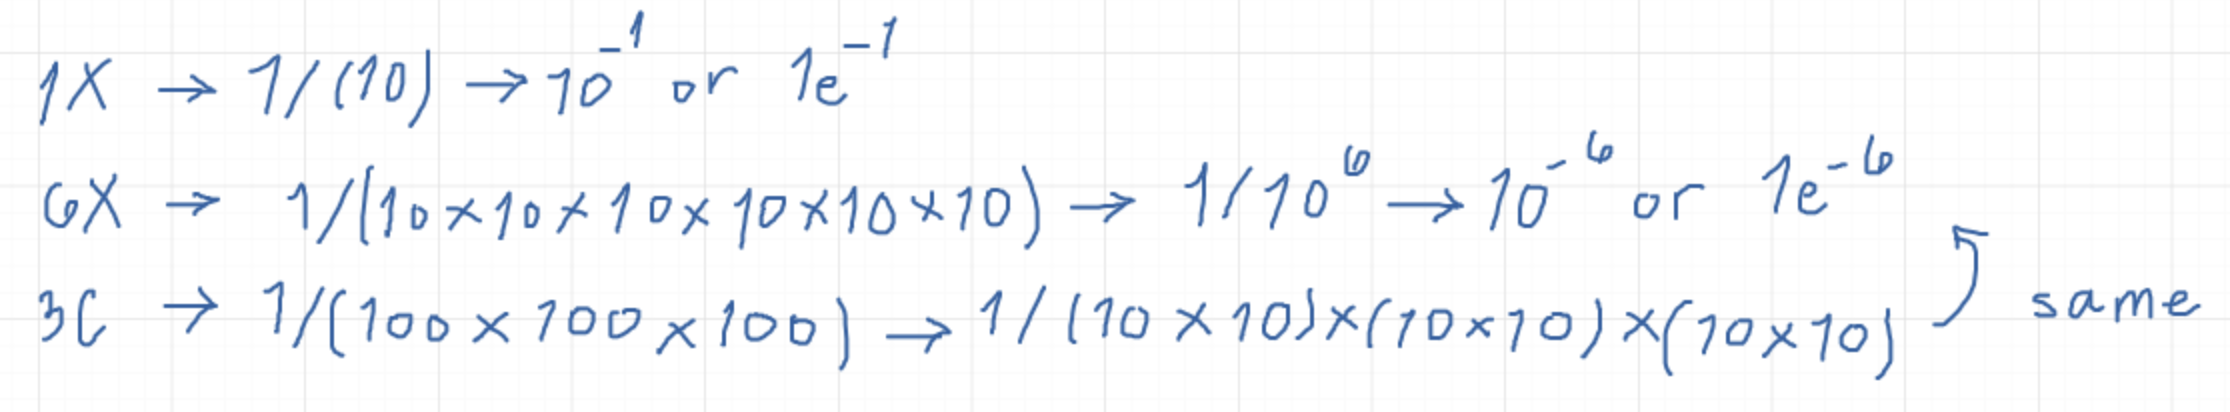 1X → 1/(10) → 10⁻¹ or 1e⁻¹
6X → 1/(10×10×10×10×10×10) → 1/10⁶ → 10⁻⁶ or 1e⁻⁶
3C → 1/(100×100×100) → 1/(10×10)×(10×10)×(10×10) ⤴ same